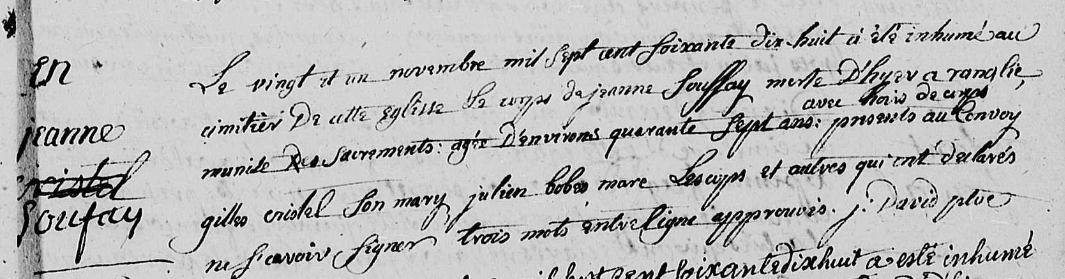 En
jeanne
cristel
Souffay
Le vingt et un novembre mil sept cent soixante dix-huit a été inhumé au
cimitier De cette Eglisse Le corps de jeanne Souffay morte D'hyer a ranglie,
avec bois de corps
munise Des sacrements: agée D'environs quarante sept ans: presents au Convoy
gilles cristel son mary julien bobes marc Lescops et autres qui ont declarés
ne scavoir signer trois mots entre Ligne approuvés. j: David ptre
huit cent soixante dix huit a esté inhumé